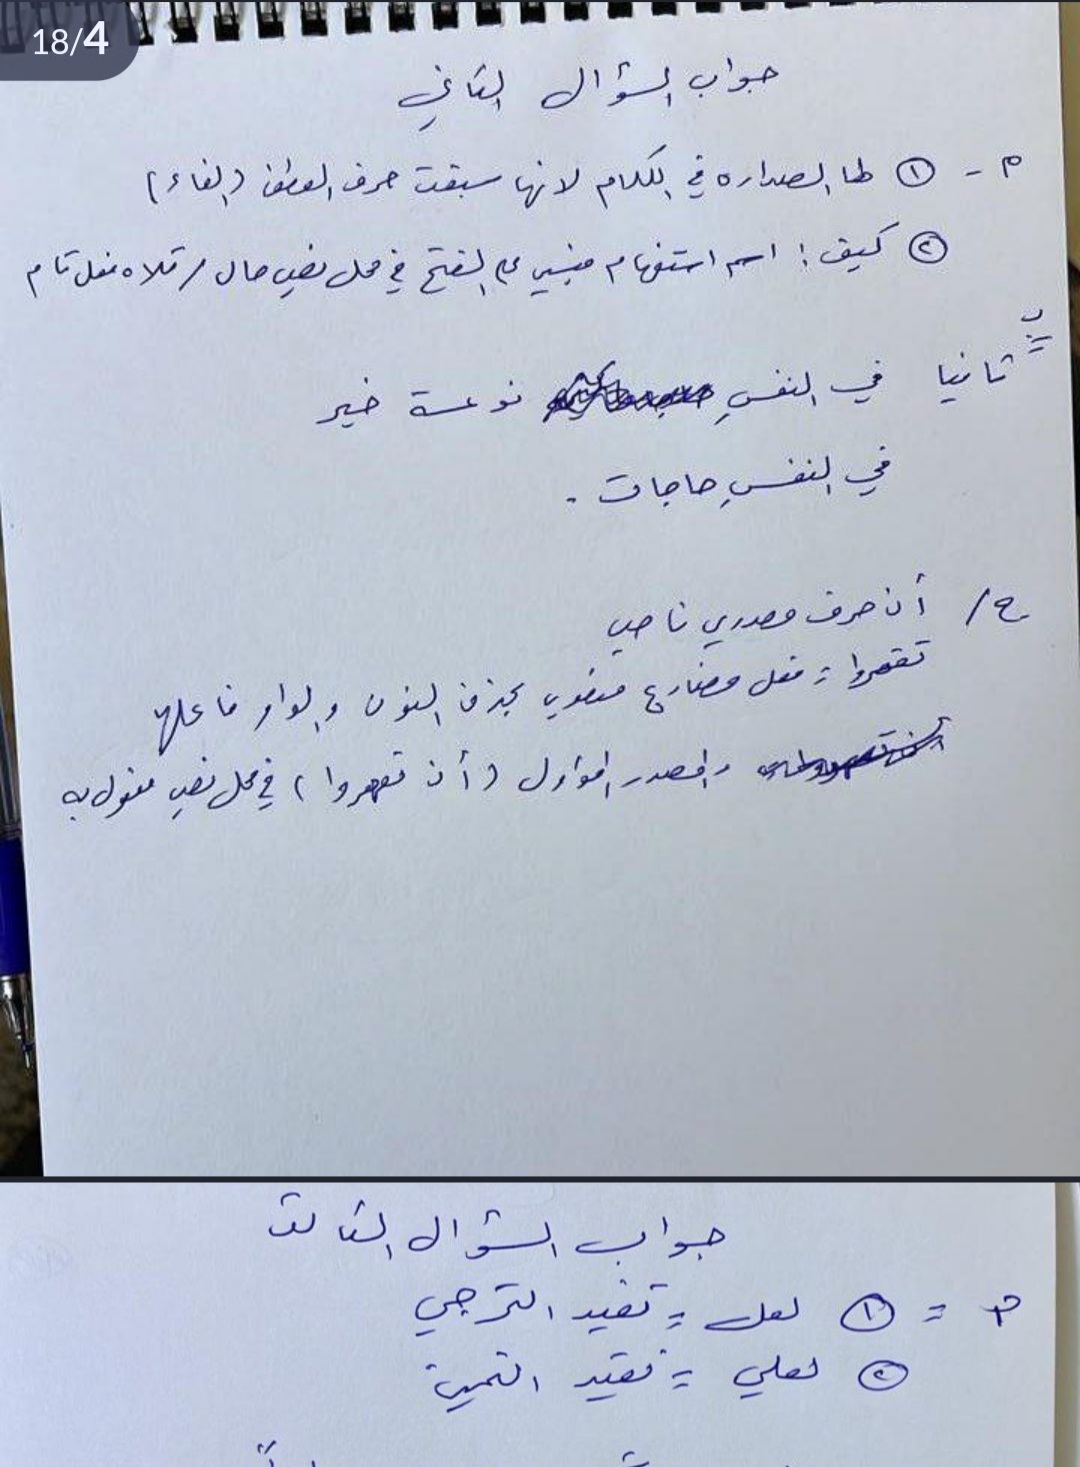 18/4
جواب السؤال الثاني
م - ① لها الصداره في الكلام لانها سبقت حرف العطف (الفاء)
② كيف: اسم استفهام مبني على الفتح في محل نصب حال / تلاه فعل تام
ب
ثانيا في النفس نوعه خبر
في النفسِ حاجات .
ح / أن حرف مصدري ناصب
تقهروا = فعل مضارع منصوب بحذف النون والواو فاعلها
والمصدر المؤول (أن تقهروا) في محل نصب مفعول به
جواب السؤال الثالث
م = ① لعل = تفيد الترجي
② لعلي = تفيد التمني